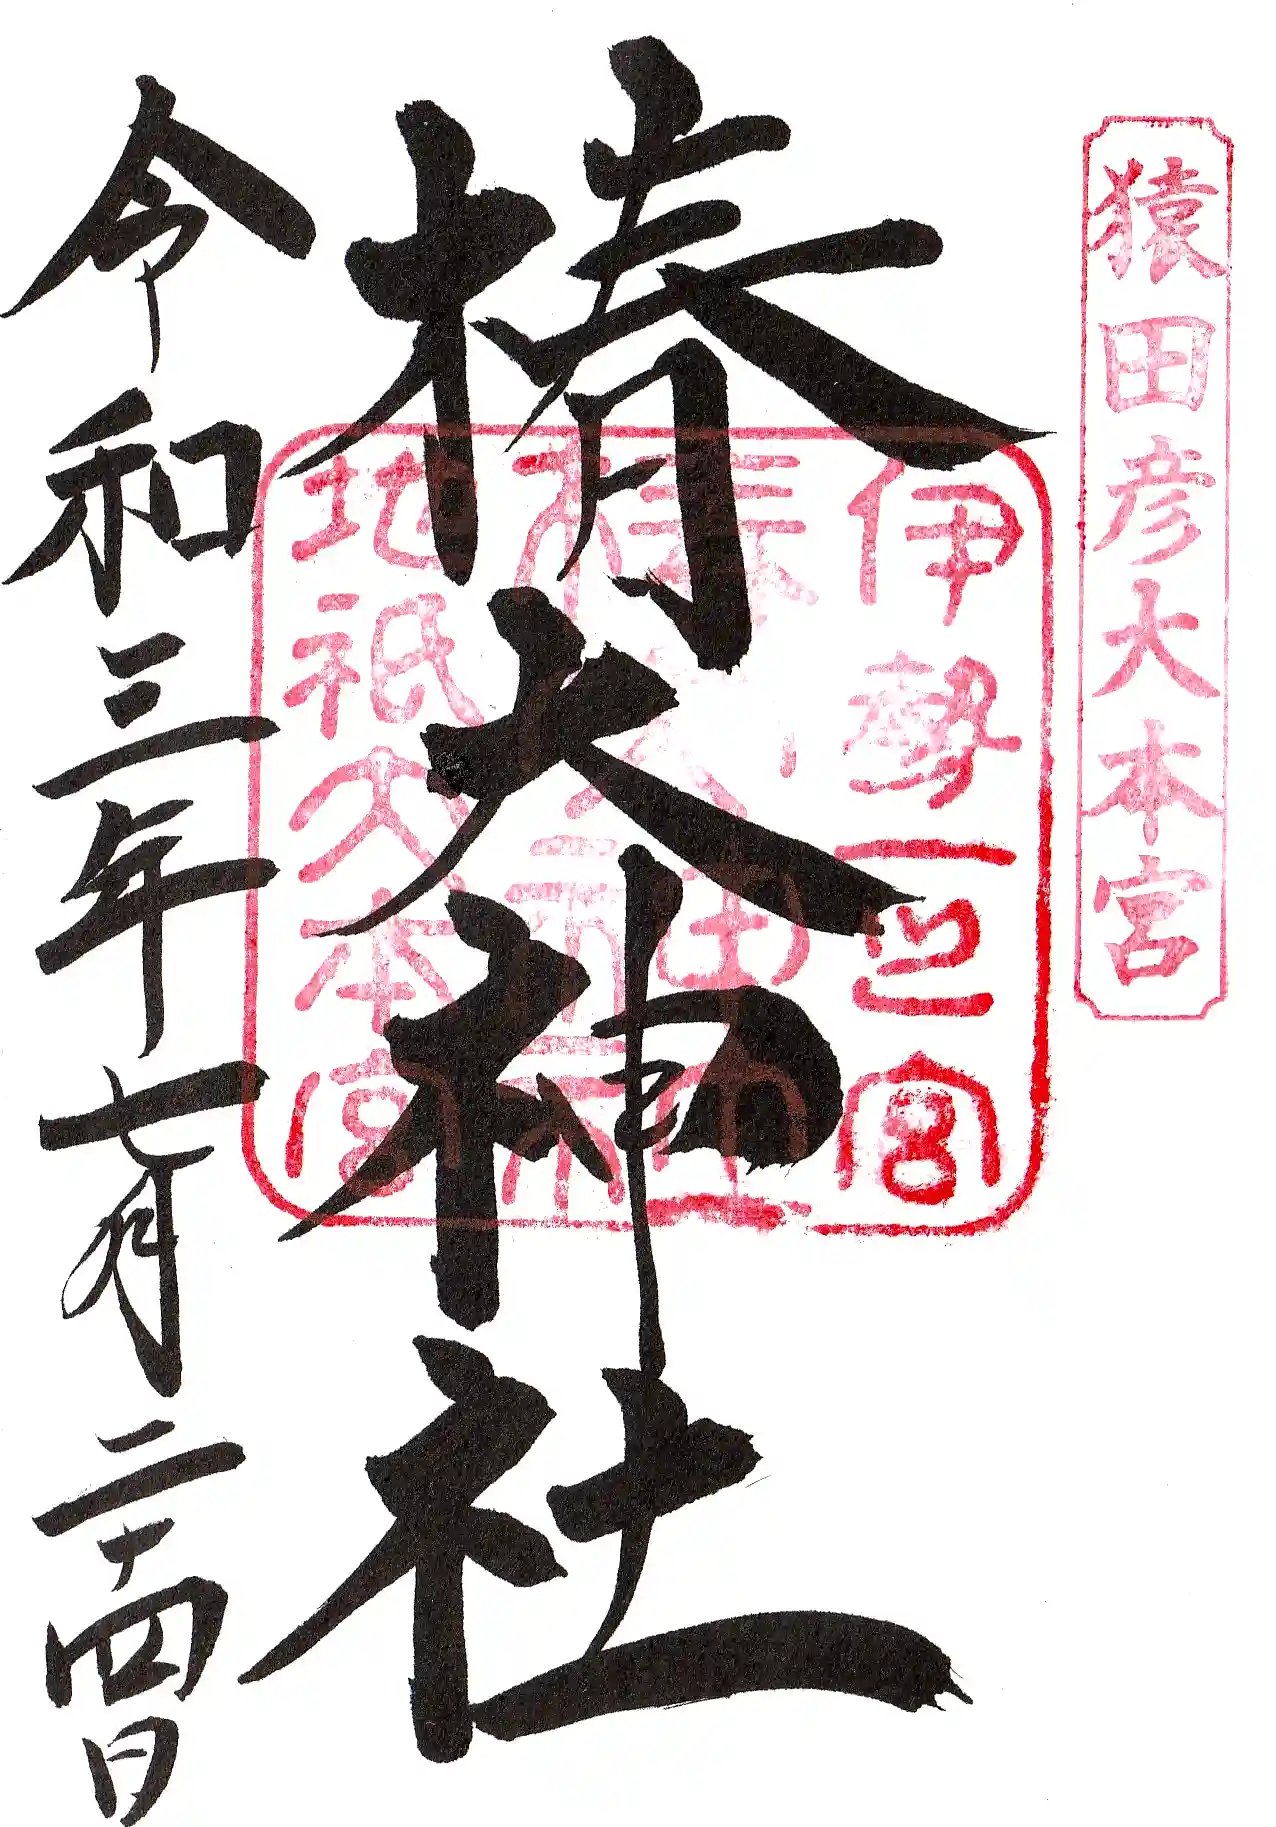 猿田彦大本宮
伊勢一之宮
椿大神社
地祇大本宮
椿大神社
令和三年七月二十四日